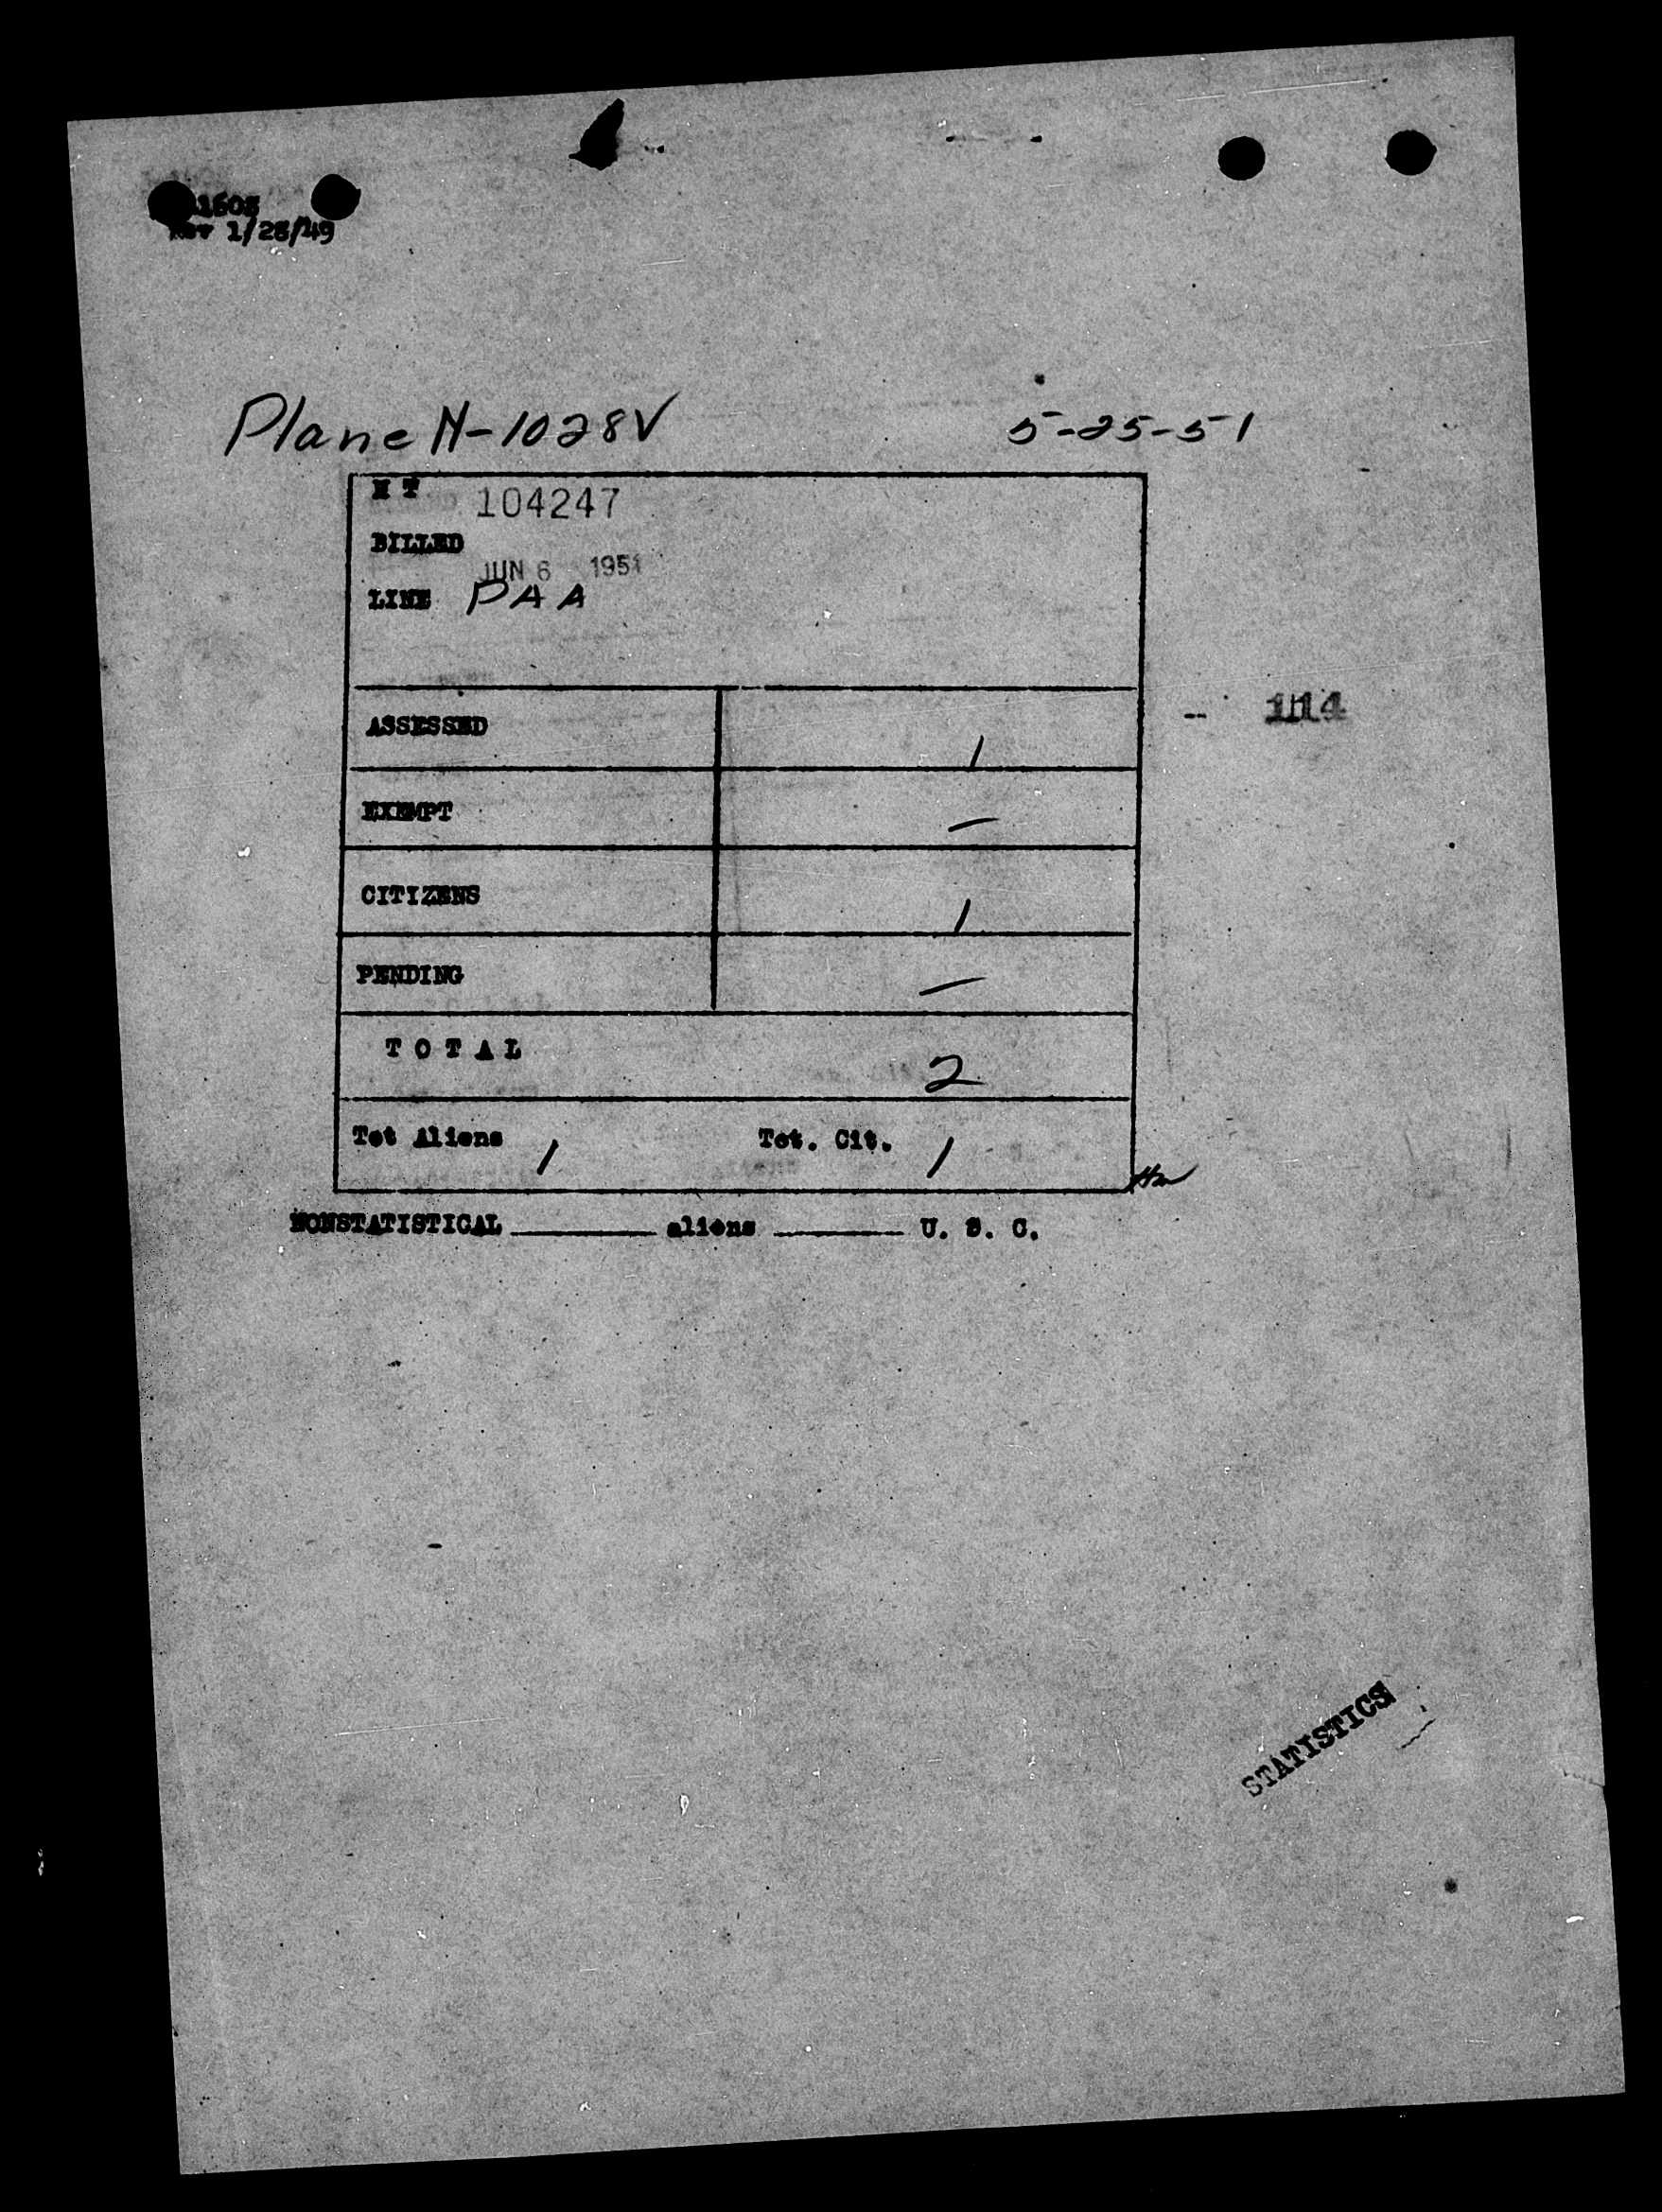 1603
Rev 1/28/49
Plane N-1028V 5-25-51
H T 104247
BILLED
JUN 6 1951
LINE PAA
ASSESSED 1
-- 114
EXEMPT —
CITIZENS 1
PENDING —
TOTAL 2
Tot Aliens 1 Tot. Cit. 1
NONSTATISTICAL ______ aliens ______ U. S. C.
STATISTICS